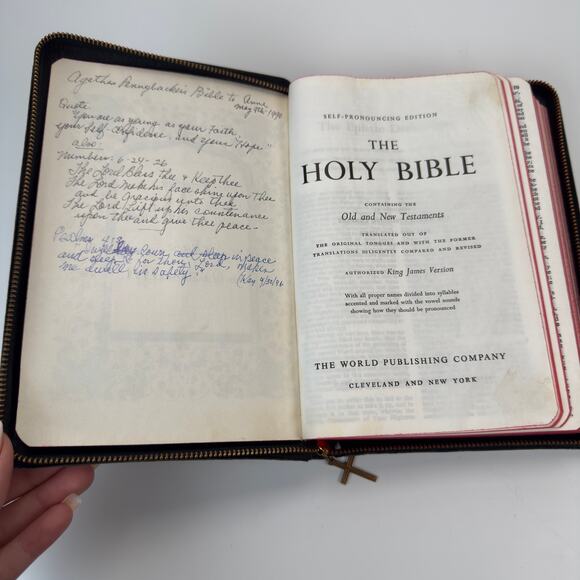 Agatha Pennybacker's Bible to Anne
May 9th 1990
Quote
"You are as young as your Faith
your Self-Confidence, and your "Hope"
also:
Numbers: 6-24-26
The Lord Bless thee & Keep thee
The Lord make his face shine upon thee
and be Gracious unto thee
The Lord Lift up his countenance
upon thee and give thee peace.
Psalms 4:8
down and sleep in peace
and sleep for thou Lord, makes
me dwell in safety"
SELF-PRONOUNCING EDITION
THE
HOLY BIBLE
CONTAINING THE
Old and New Testaments
TRANSLATED OUT OF
THE ORIGINAL TONGUES AND WITH THE FORMER
TRANSLATIONS DILIGENTLY COMPARED AND REVISED
AUTHORIZED King James Version
With all proper names divided into syllables
accented and marked with the vowel sounds
showing how they should be pronounced
THE WORLD PUBLISHING COMPANY
CLEVELAND AND NEW YORK